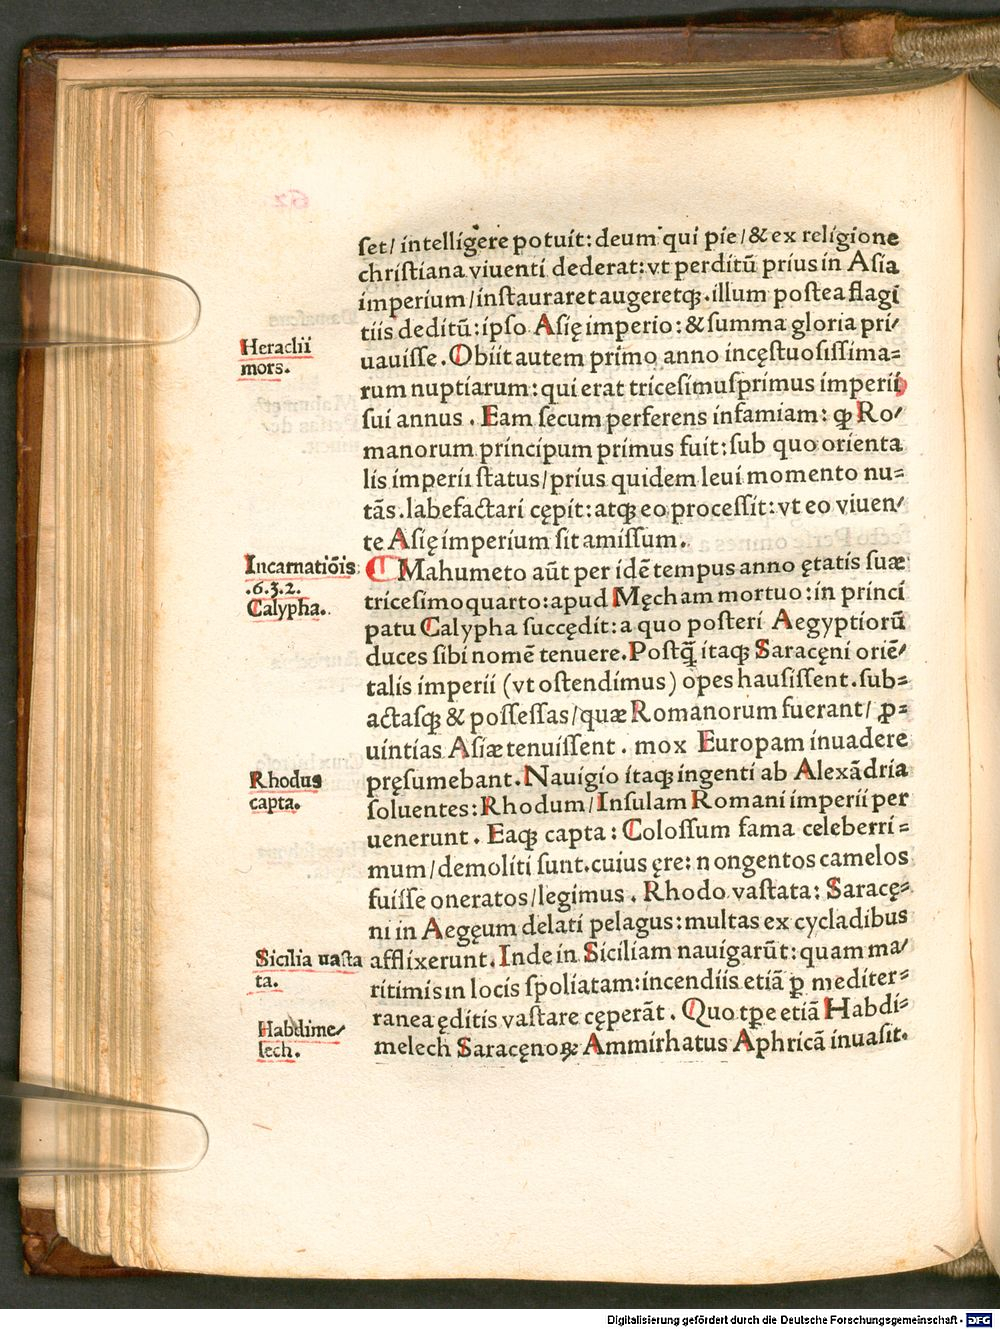 ſet/ intelligere potuit: deum qui pie/ & ex religione
chriſtiana viuenti dederat: vt perditū prius in Aſia
imperium/ inſtauraret augeretqꝫ. illum poſtea flagi
tiis deditū: ipſo Aſię imperio: & ſumma gloria pri/
Heraclii
mors.
uauiſſe. Obiit autem primo anno incęſtuoſiſſima=
rum nuptiarum: qui erat triceſimuſprimus imperii
ſui annus. Eam ſecum perferens infamiam: ꝙ Ro/
manorum principum primus fuit: ſub quo orienta
lis imperii ſtatus/ prius quidem leui momento nu=
tãs. labefactari cępit: atqꝫ eo proceſſit: vt eo viuen/
te Aſię imperium ſit amiſſum.
Incarnatiõis
.632.
Calypha.
Mahumeto aūt per idē tempus anno ętatis ſuæ
triceſimoquarto: apud Męcham mortuo: in princi
patu Calypha ſuccędit: a quo poſteri Aegyptiorū
duces ſibi nomē tenuere. Poſtq̄ itaqꝫ Saracęni oriē/
talis imperii (vt oſtendimus) opes hauſiſſent. ſub=
actaſqꝫ & poſſeſſas/ quæ Romanorum fuerant/ ꝓ=
uintias Aſiæ tenuiſſent. mox Europam inuadere
Rhodus
capta.
pręſumebant. Nauigio itaqꝫ ingenti ab Alexãdria
ſoluentes: Rhodum/ Inſulam Romani imperii per
uenerunt. Eaqꝫ capta: Coloſſum fama celeberri=
mum/ demoliti ſunt. cuius ęre: nongentos camelos
fuiſſe oneratos/ legimus. Rhodo vaſtata: Saracę=
ni in Aegęum delati pelagus: multas ex cycladibus
Sicilia uaſta
ta.
afflixerunt. Inde in Siciliam nauigarūt: quam ma/
ritimis in locis ſpoliatam: incendiis etiã ꝑ mediter=
Habdime/
lech.
ranea ęditis vaſtare cęperãt. Quo tꝑe etiã Habdi=
melech Saracęnoꝝ Ammirhatus Aphricã inuaſit.
Digitalisierung gefördert durch die Deutsche Forschungsgemeinschaft - DFG